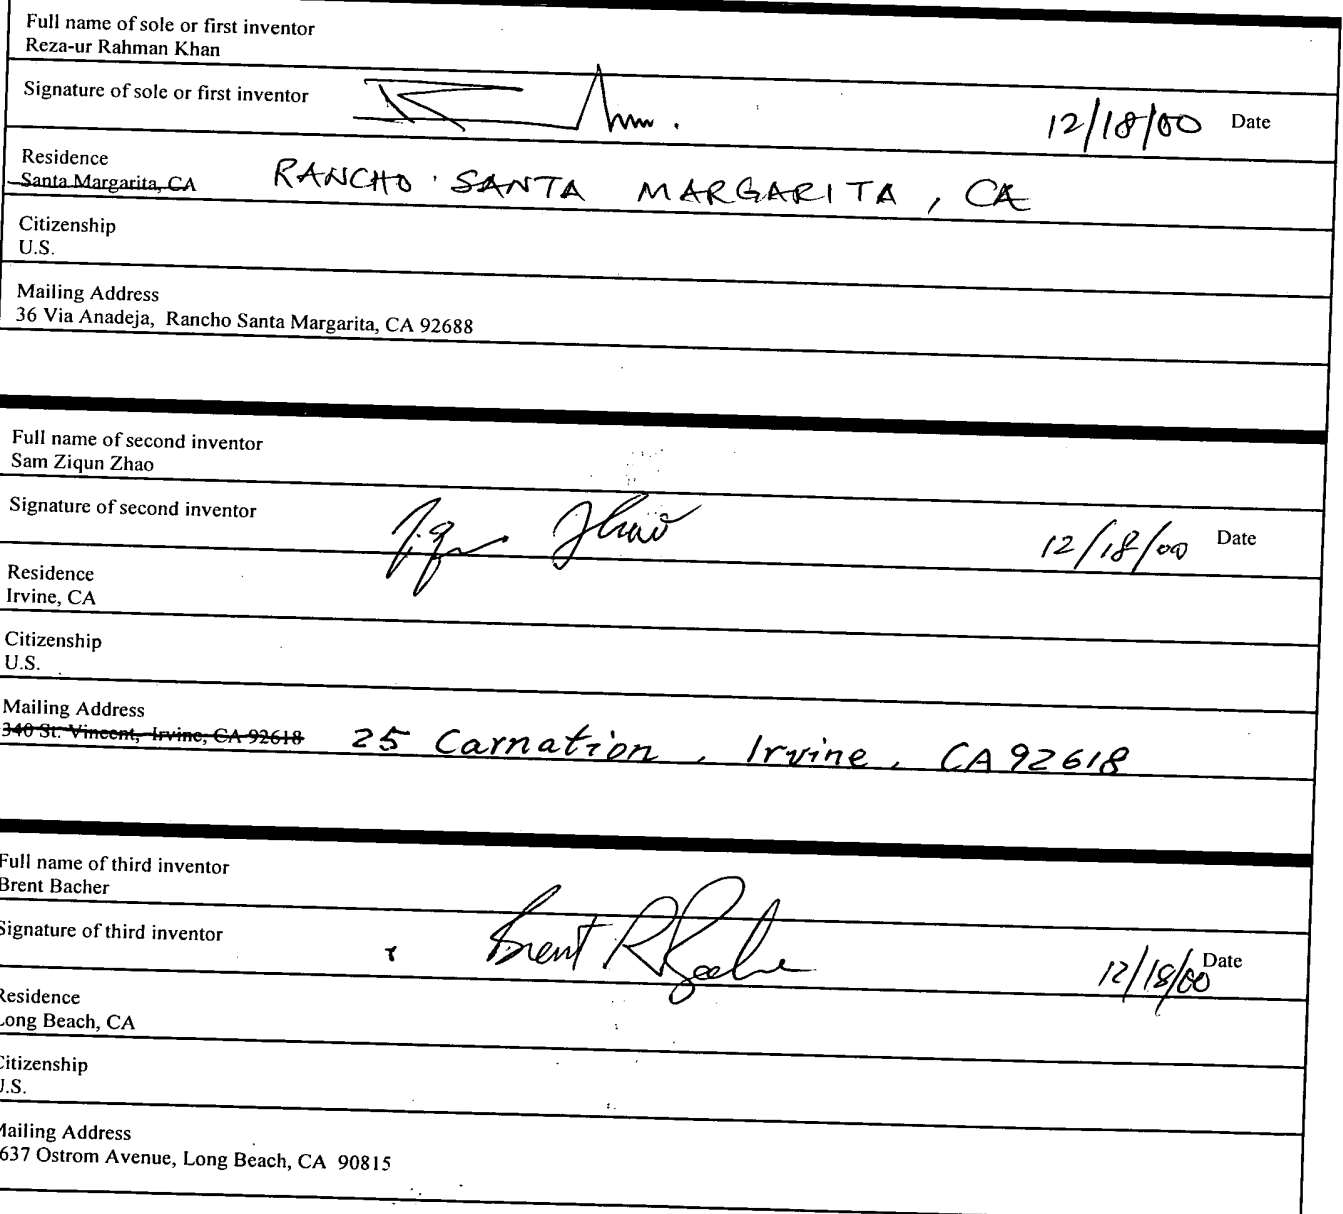 Full name of sole or first inventor
Reza-ur Rahman Khan
Signature of sole or first inventor 12/18/00 Date
Residence
Santa Margarita, CA RANCHO SANTA MARGARITA, CA
Citizenship
U.S.
Mailing Address
36 Via Anadeja, Rancho Santa Margarita, CA 92688
Full name of second inventor
Sam Ziqun Zhao
Signature of second inventor Ziqun Zhao 12/18/00 Date
Residence
Irvine, CA
Citizenship
U.S.
Mailing Address
340 St. Vincent, Irvine, CA 92618 25 Carnation, Irvine, CA 92618
Full name of third inventor
Brent Bacher
Signature of third inventor Brent R Bacher 12/18/00 Date
Residence
Long Beach, CA
Citizenship
U.S.
Mailing Address
637 Ostrom Avenue, Long Beach, CA 90815